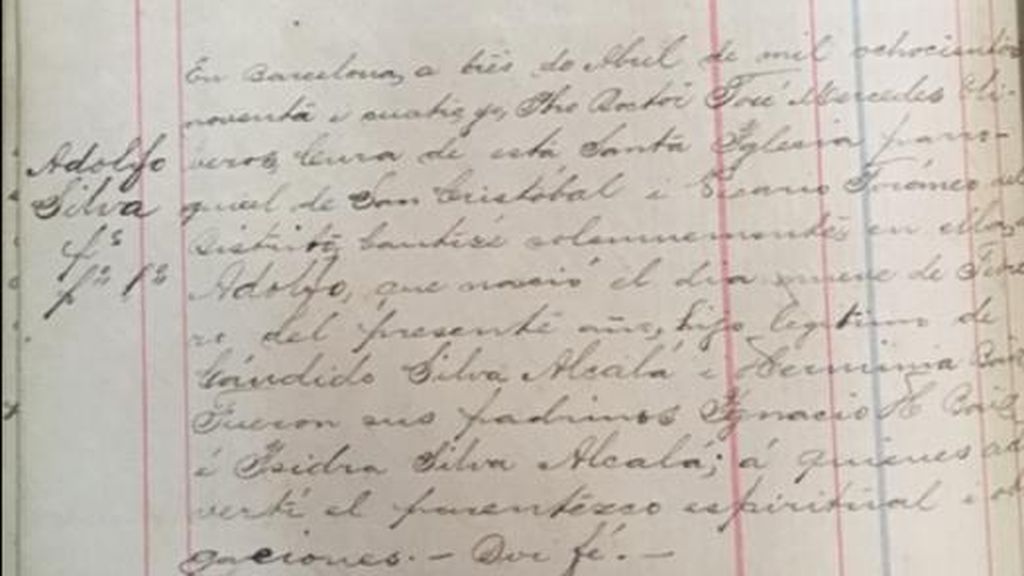 Adolfo
Silva
En Barcelona, a trés de Abril de mil ochocientos
noventa i cuatro yo, Pbro Doctor José Mercedes Oli-
veros, Cura de está Santa Iglesia parro-
quial de San Cristóbal i Vicario Foráneo del
Distrito, bautizé solemnemente en ella, á
Adolfo, que nació el dia nueve de Ene
ro del presente año, hijo legitimo de
Cándido Silva Alcalá i Herminia
Fueron sus padrinos Ygnacio H
i Isidra Silva Alcalá; á quienes ad
vertí el parentezco espiritual i ob
gaciones. — Doi fé. —